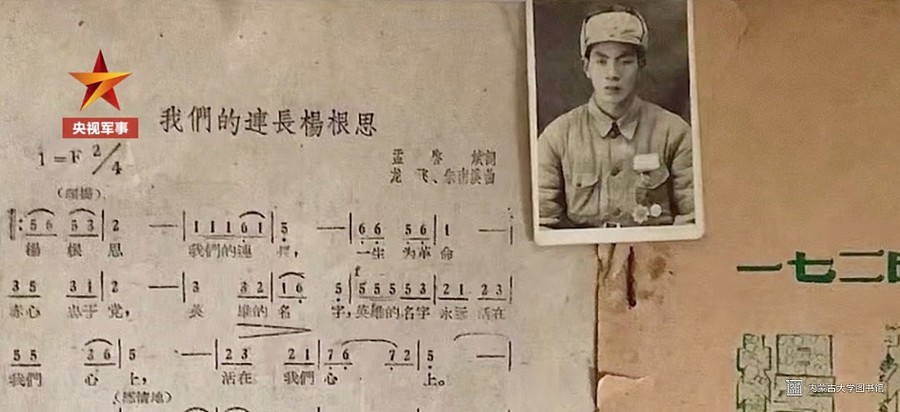 央视军事
我們的連長楊根思
1=F 2/4
龙飞、朱南溪曲
5 6 5 3 2 — 1 1 1 6 1 5 — 6 6 5 6 1 —
楊 根 思 我們的連 長, 一生 为革 命
3 5 3 1 2 — 3 3 2 1 6 5 5 5 5 5 3 2 1 2 3
f
赤心 忠于 党, 英 雄的 名 字, 英雄的 名字 永远 活在
5 5 3 6 5 — 2 3 2 1 7 6 7 2 5 —
我們 心 上, 活在 我們 心 上。
一七二
内蒙古大学图书馆